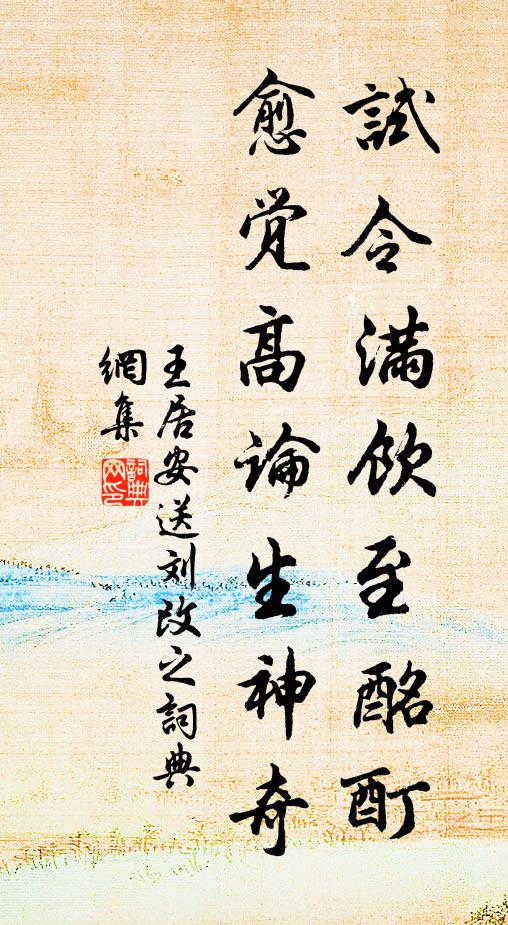 試令滿飲至酩酊
愈觉高論生神奇
王居安送刘改之詞典
網集
詞典
网印